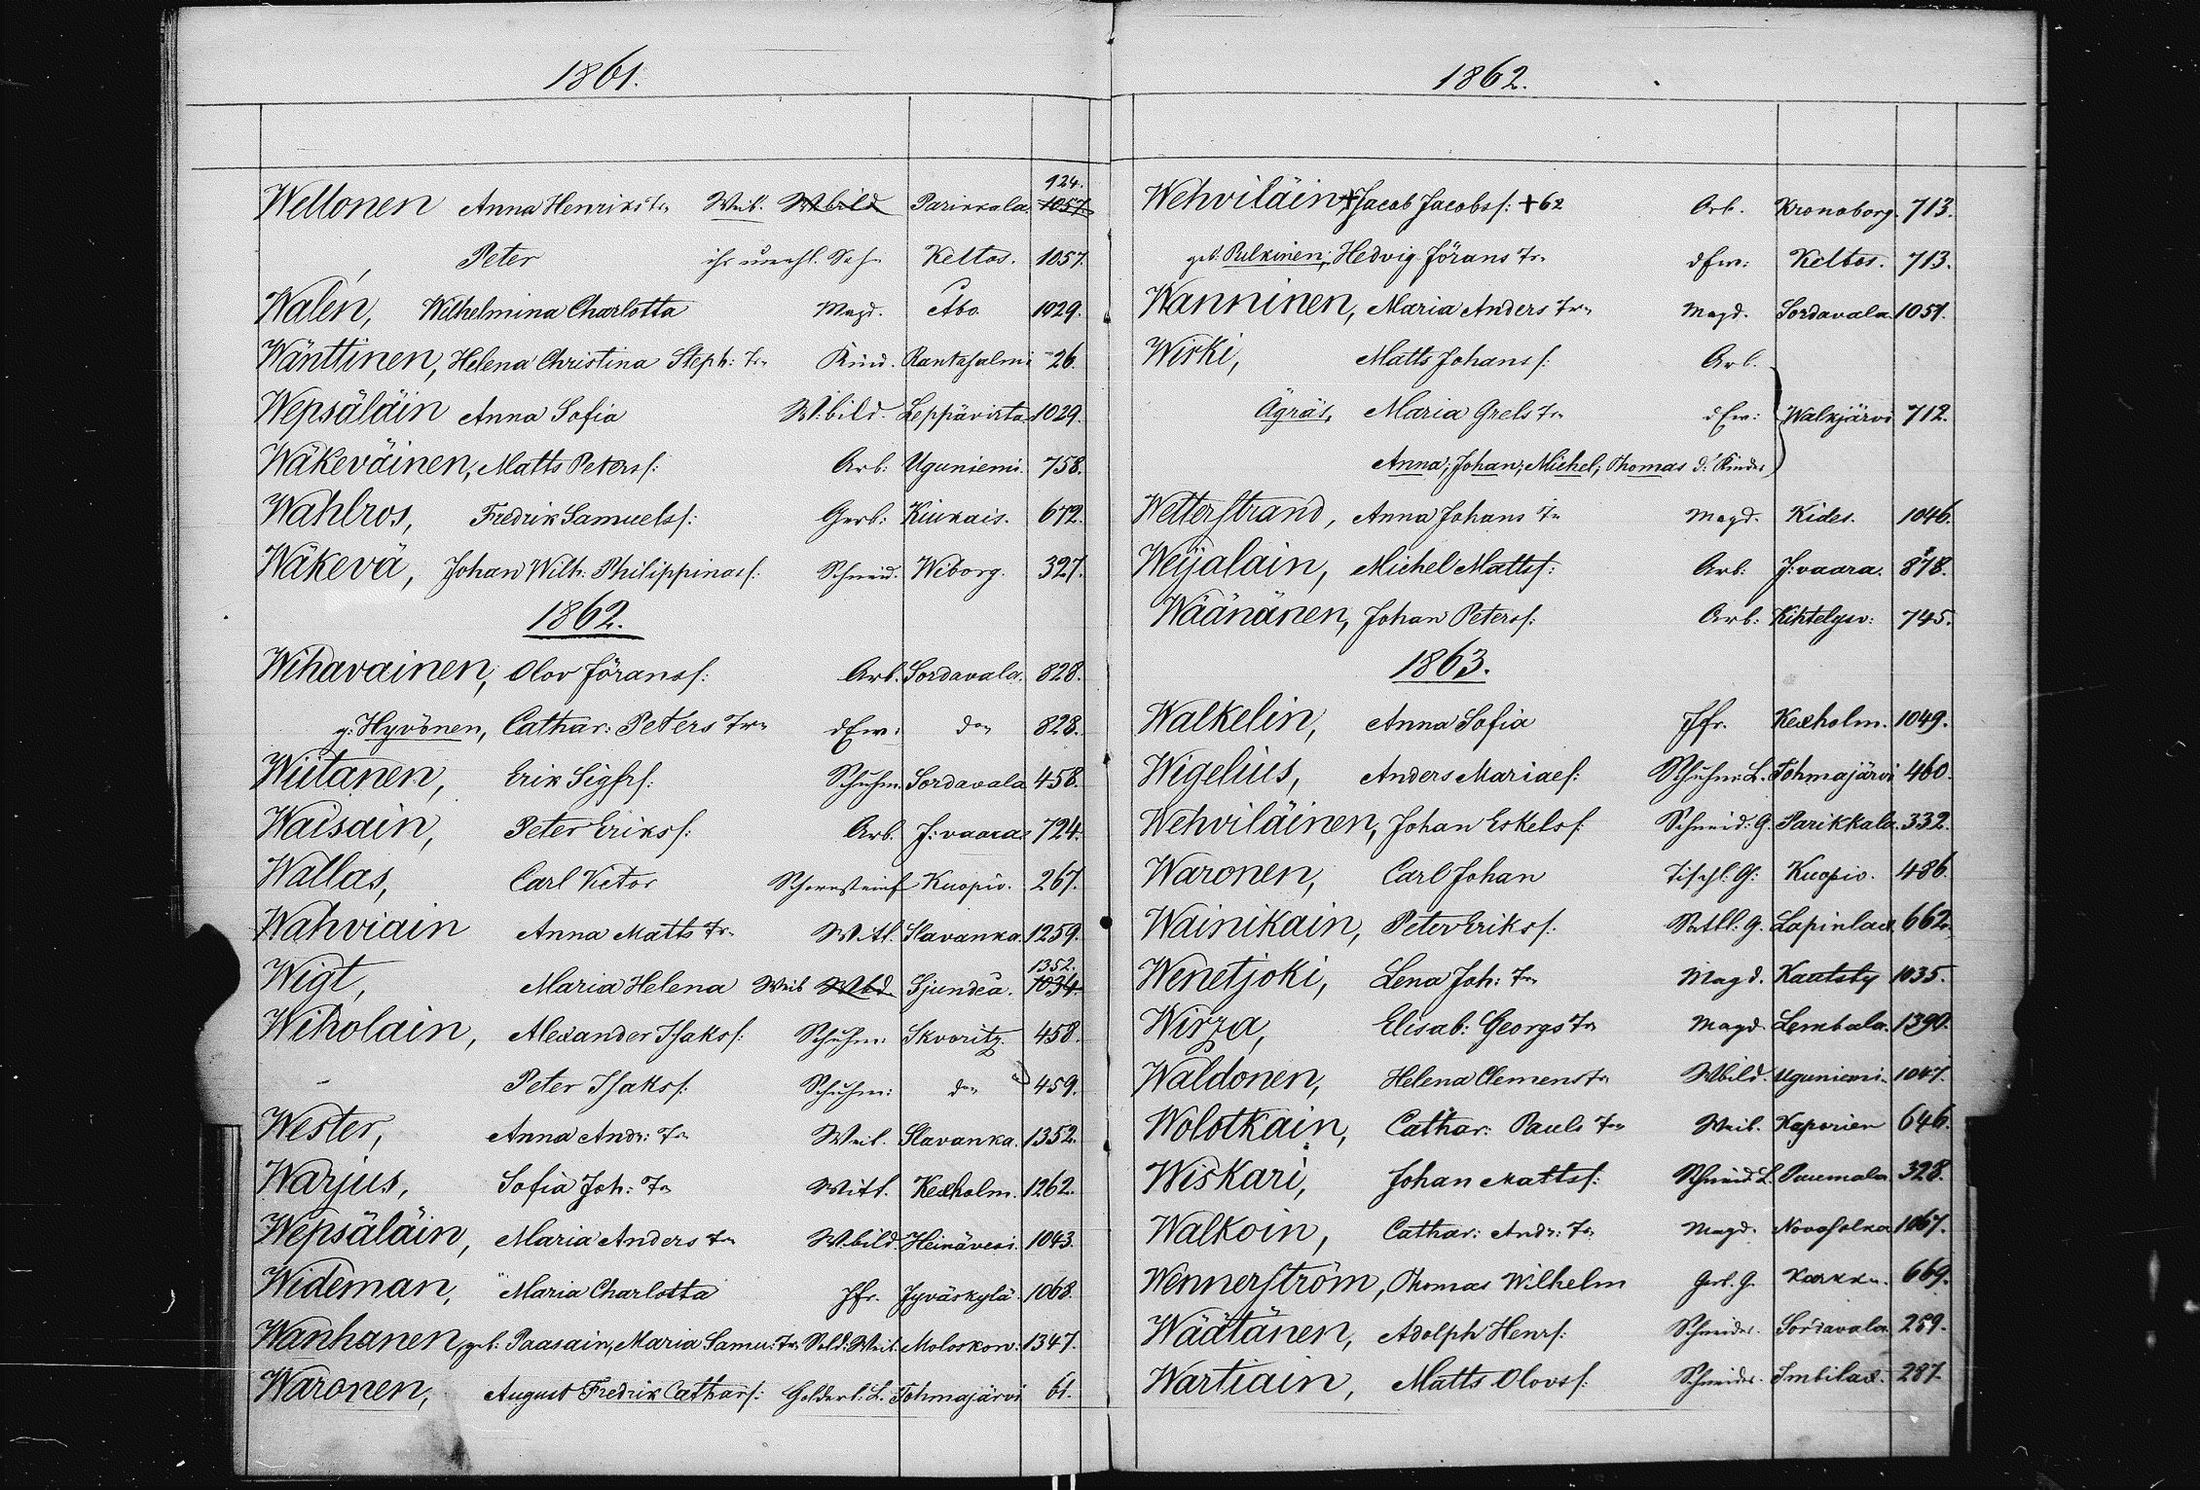 1861.
Weltonen Anna Henriks Tr. Weib. Wbild Parikkala. 924. 1057.
Peter ihr unehl. Sohn Keltos. 1057.
Walén, Wilhelmina Charlotta Magd. Åbo 1029.
Wänttinen, Helena Christina Steph: Tr. Kind. Rantasalmi 26.
Wepsäläin Anna Sofia W:bild. Leppävirta. 1029.
Wäkeväinen, Matts Peterss: Arb: Uguniemi. 758.
Wahlros, Fredrik Samuelss: Gerb: Kiukais. 672.
Wäkevä, Johan Wilh: Philippinass: Schneid. Wiborg. 327.
1862.
Wihavainen, Olov Jöranss: Arb. Sordavala. 828.
g: Hyvönen, Cathar: Peters Tr dEw: do 828.
Wiitanen, Erik Sigfrs: Schuhm. Sordavala 458.
Waisain, Peter Erikss: Arb. J:vaara 724.
Wallas, Carl Victor Schornsteinf Kuopio. 267.
Wahviain Anna Matts Tr. Witt. Slavanka. 1259.
Wigt, Maria Helena Weib Wbd. Sjundeå. 1352. 1034.
Wiholain, Alexander Isakss: Schuhm: Skvoritz. 458.
Peter Isakss: Schuhm: do 459.
Wester, Anna Andr: Tr Weib. Slavanka. 1352.
Warjus, Sofia Joh: Tr Witt. Kexholm. 1262.
Wepsäläin, Maria Anders Tr W:bild. Heinävesi. 1043.
Wideman, Maria Charlotta Jfr. Jyväskylä. 1068.
Wanhanen, geb: Paasain, Maria Samu: Tr. Sold: Weib. Moloskow: 1347.
Waronen, August Fredrik Cathars: Goldarb: L. Tohmajärvi 61.
1862.
Wehviläin + Jacob Jacobss: +62 Arb. Kronoborg. 713.
geb. Pulkinen; Hedvig Jörans Tr. dEw: Keltos. 713.
Wanninen, Maria Anders Tr. Magd. Sordavala. 1051.
Wirki, Matts Johanss: Arb.
Ägräs, Maria Grels Tr dEw: Walkjärvi 712.
Anna; Johan; Michel, Thomas d: Kinder
Wetterstrand, Anna Johans Tr Magd. Kides. 1046.
Weijalain, Michel Mattss: Arb: J:vaara. 878.
Wäänänen, Johan Peterss: Arb: Kihtelysv: 745.
1863.
Walkelin, Anna Sofia Jfr. Kexholm. 1049.
Wigelius, Anders Mariaes: Schuhm: L. Tohmajärvi 460.
Wehviläinen, Johan Eskelss: Schneid: G. Parikkala. 332.
Waronen, Carl Johan Tischl. G: Kuopio. 486.
Wainikain, Peter Erikss: Sattl: G. Lapinlax. 662.
Wenetjoki, Lena Joh: Tr. Magd. Kautsty 1035.
Wirza, Elisab: Georgs Tr Magd. Lembala. 1390.
Waldonen, Helena Clemens Tr Wbild. Uguniemi. 1047.
Wolotkain, Cathar: Pauls Tr Weib. Kaporien 646.
Wiskari, Johan Mattss: Schneid L. Puumala. 328.
Walkoin, Cathar: Andr: Tr. Magd. Novosolka 1067.
Wennerström, Thomas Wilhelm Gerb. G. Karkku. 669.
Wäätänen, Adolph Henrs: Schneider. Sordavala. 289.
Wartiain, Matts Olovss: Schneider. Imbilax. 287.